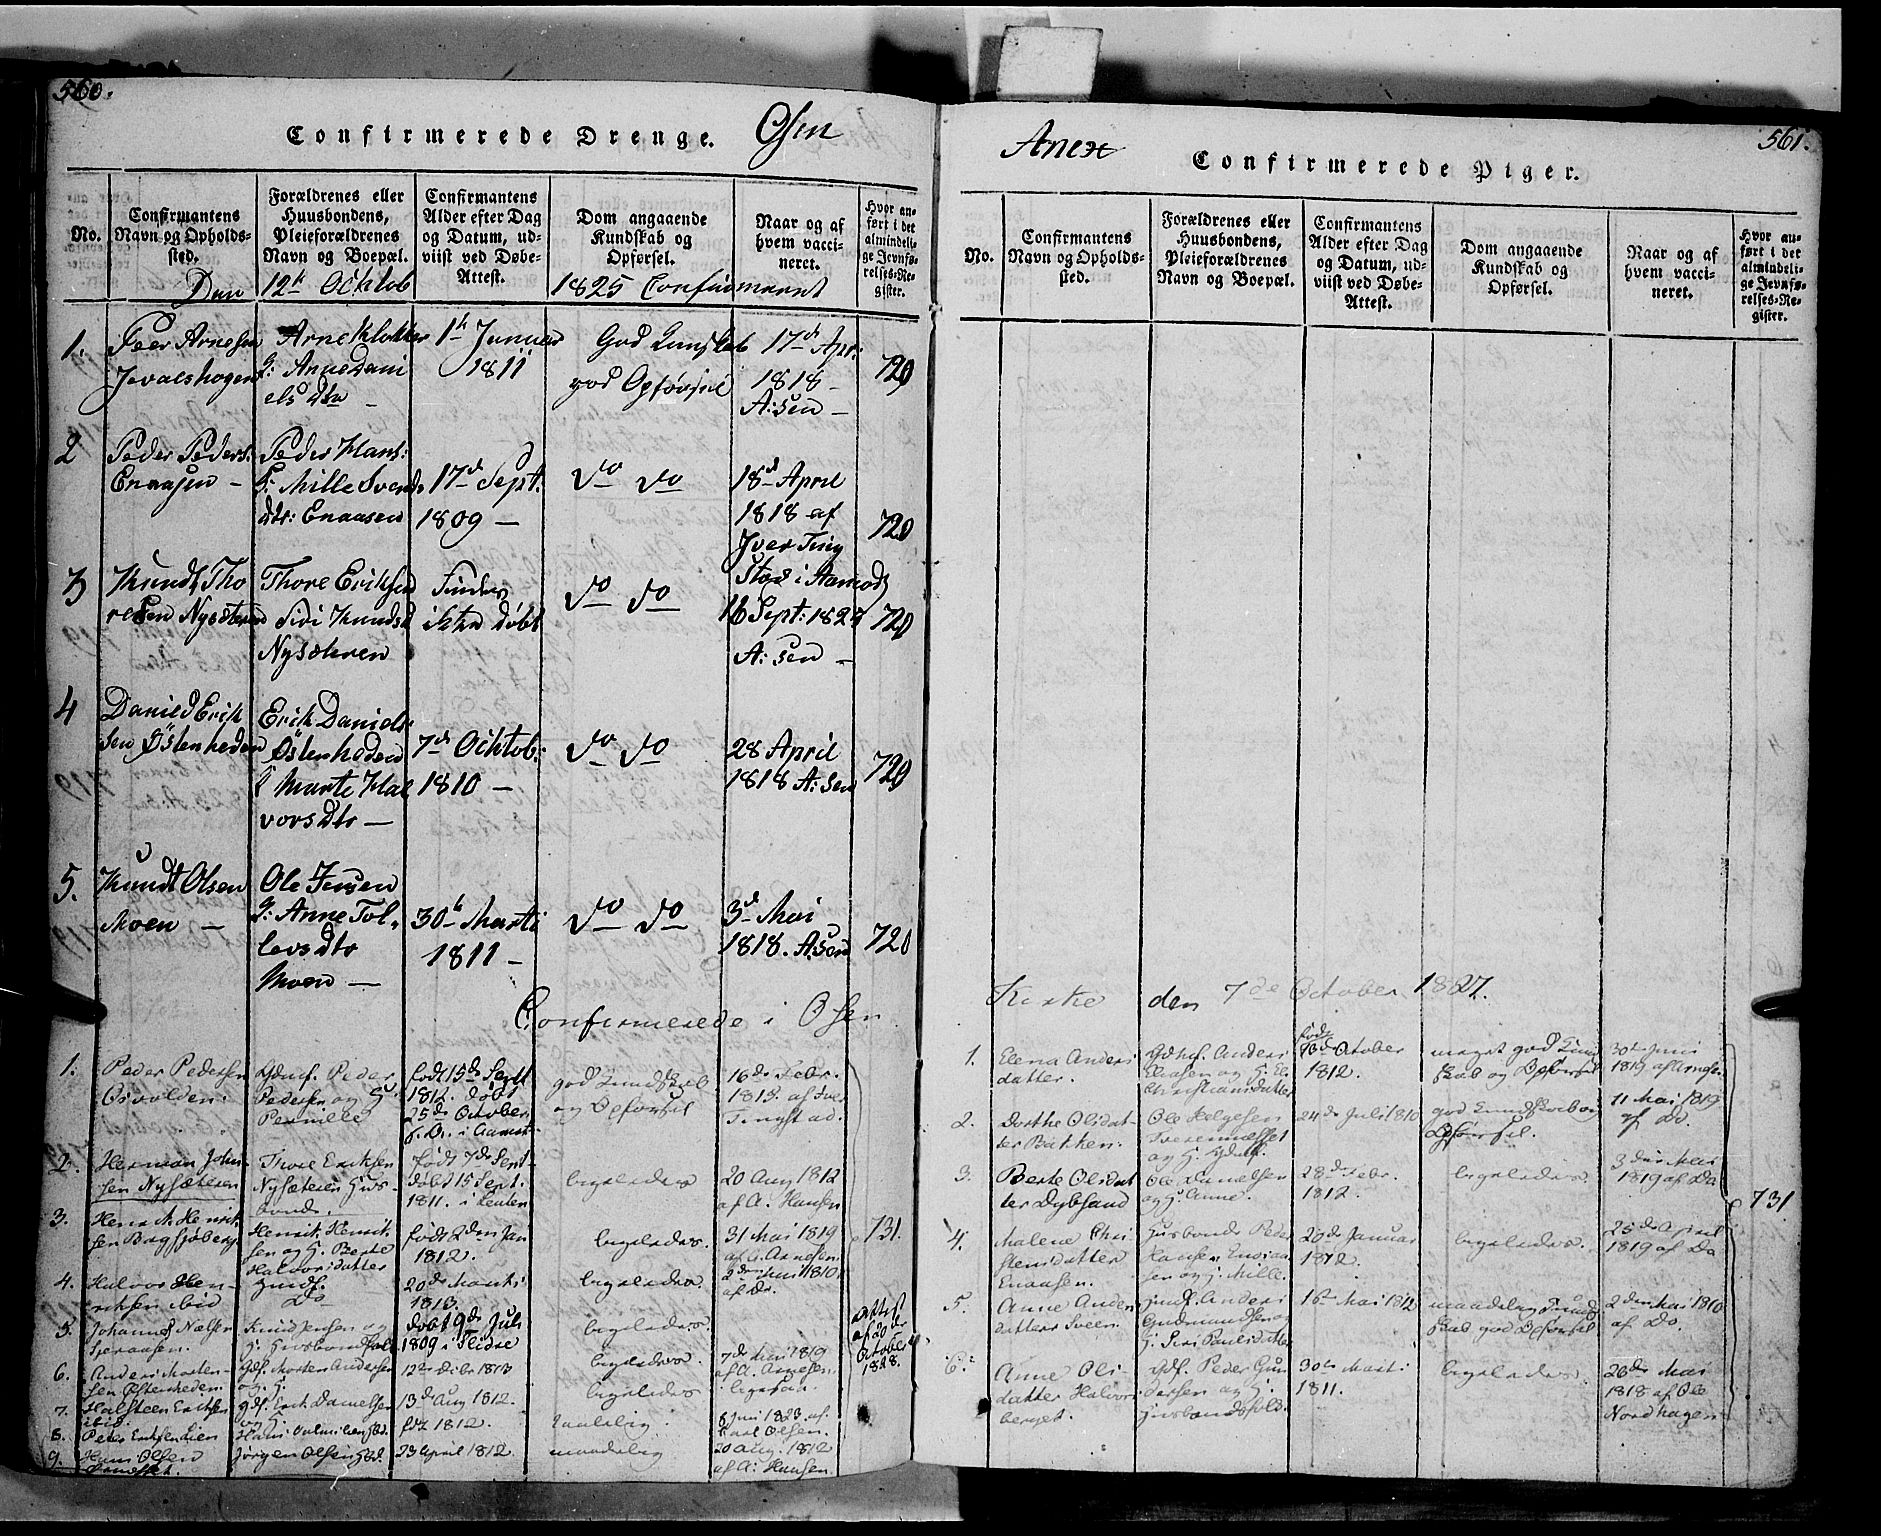 560.
Confirmerede Drenge.
Osen
No.
Confirmantens
Navn og Opholds-
sted.
Forældrenes eller
Huusbondens,
Pleieforældrenes
Navn og Boepæl.
Confirmantens
Alder efter Dag
og Datum, ud-
viist ved Døbe-
Attest.
Dom angaaende
Kundskab og
Opførsel.
Naar og af
hvem vacci-
neret.
Hvor an-
ført i det
almindeli-
ge Jevnfø-
relses-Re-
gister.
Den 12te Ochtob 1825 Confirmeret
1.
Peer Arnesen
Arne Klokker
g: Anne Dani
els Dtr
1te Januar
1811
God Kunskab
god Opførsel
17de Apr:
1818
A:sen
720
2
Peder Peders:
Enaasen
Peder Hans:
g: Mille Svends
dtr: Enaasen
17de Sept.
1809
do do
18de April
1818 af
Iver Ting
stad i Aamod
720
3
Knudt Tho
resen Nysæteren
Thore Eriksen
Siri Knudsd
Nysæteren
Findes
ikke døbt
do do
16 Sept: 182
A:sen
720
4
Daniel Erik
sen Østenheden
Erik Daniels
Østenheden
g Marte Hal
vorsdtr
7de Ochtob:
1810
do do
28 April
1818 A:sen
720
5.
Knudt Olsen
Moen
Ole Jensen
g: Anne Tol
levsdtr
Moen
30te Marti
1811
do do
3de Mai
1818. A:sen
720
Confirmerede i Osen
1.
Peder Pedersen
Osvolden.
Gdmf. Peder
Pedersen og H.
Pernille
født 15de Sept
1812. døbt
25de October
god Kundskab
og Opførsel
16de Febr.
1813. af Iver
Tingstad.
2.
Herman John-
sen Nysæteren
Thore Eriksen
Nysæteren Huus-
bonde.
født 7de Sept
døbt 15 Sept.
1811.
ligeledes
20 Aug 1812
af A. Hansen
3.
Henrik Henrik-
sen Bergsjøberg
Henrik Henrik
sen og H. Berte
Halvorsdatter
født 2den Jan
1812.
ligeledes.
31 Mai 1819
af A. Arnesen
731.
4.
Halvor Hen-
riksen ibid
Do
20de Marts
1813.
ligeledes
af Do.
5.
Johannes Nælsen
Knud Jensen og
døbt 9de Juli
1809 i Slidre
ligeledes.
Attest
af 20de
October
1828.
6.
Anders Morten-
sen Østenheden
Gdf. Morten Andersen
og H.
12te Debr 1813
ligeledes
7de Juni 1819
af A. Arnesen
7.
Halsteen Eriksen
ibid.
Gdf. Erik Danielsen
og H.
13de Aug 1812.
ligeledes
8.
Peder Eriksen Lien
fdt 1812.
taalelig
8 Juni 1823 af
Carl Olsen.
9.
Hans Olsen
Jørgen Olsen
23 April 1812
maadelig
20 Aug. 1812
af A. Hansen.
561.
Anex
Confirmerede Piger.
No.
Confirmantens
Navn og Opholds-
sted.
Forældrenes eller
Huusbondens,
Pleieforældrenes
Navn og Boepæl.
Confirmantens
Alder efter Dag
og Datum, ud-
viist ved Døbe-
Attest.
Dom angaaende
Kundskab og
Opførsel.
Naar og af
hvem vacci-
neret.
Hvor an-
ført i det
almindeli-
ge Jevnfø-
relses-Re-
gister.
Kirke den 7de October 1827.
1.
Elena Anders
datter.
Gdhf. Anders
Eliasen og H. El.
Christiansdatter
født
October
1812.
meget god Kund
skab og Opførsel
30te Juni
1819 af Arnesen
2.
Dorthe Olsdat-
ter Bakken.
Ole Helgesen
24de Juli 1810
god Kundskab og
Opførsel.
11 Mai 1819
af Do.
3.
Berte Olsdat
ter Dybsand
Ole Danielsen
og H. Anne.
28de Febr.
1812.
ligeledes
3die Mai
1819 af Do
731
4.
Malene Chri
stensdatter
Enaasen.
Huusbonde Peder
Hansen Enaa
sen og H. Mille.
20de Januar
1812.
ligeledes
25de April
1819 af Do
5.
Anne Anders
datter Sveen.
Anders
Gudmundsen og
H. Siri Paulsdatter
16te Mai 1812
maadelig Kund
skab god Opførsel
2den Mai 1810
af Do.
6.
Anne Ols-
datter Halvors
berget.
Gdf. Peder Gun
dersen og H.
Huusbondsfolk.
30te Marts
1811.
ligeledes
26de Mai
1818 af Ole
Nordhagen